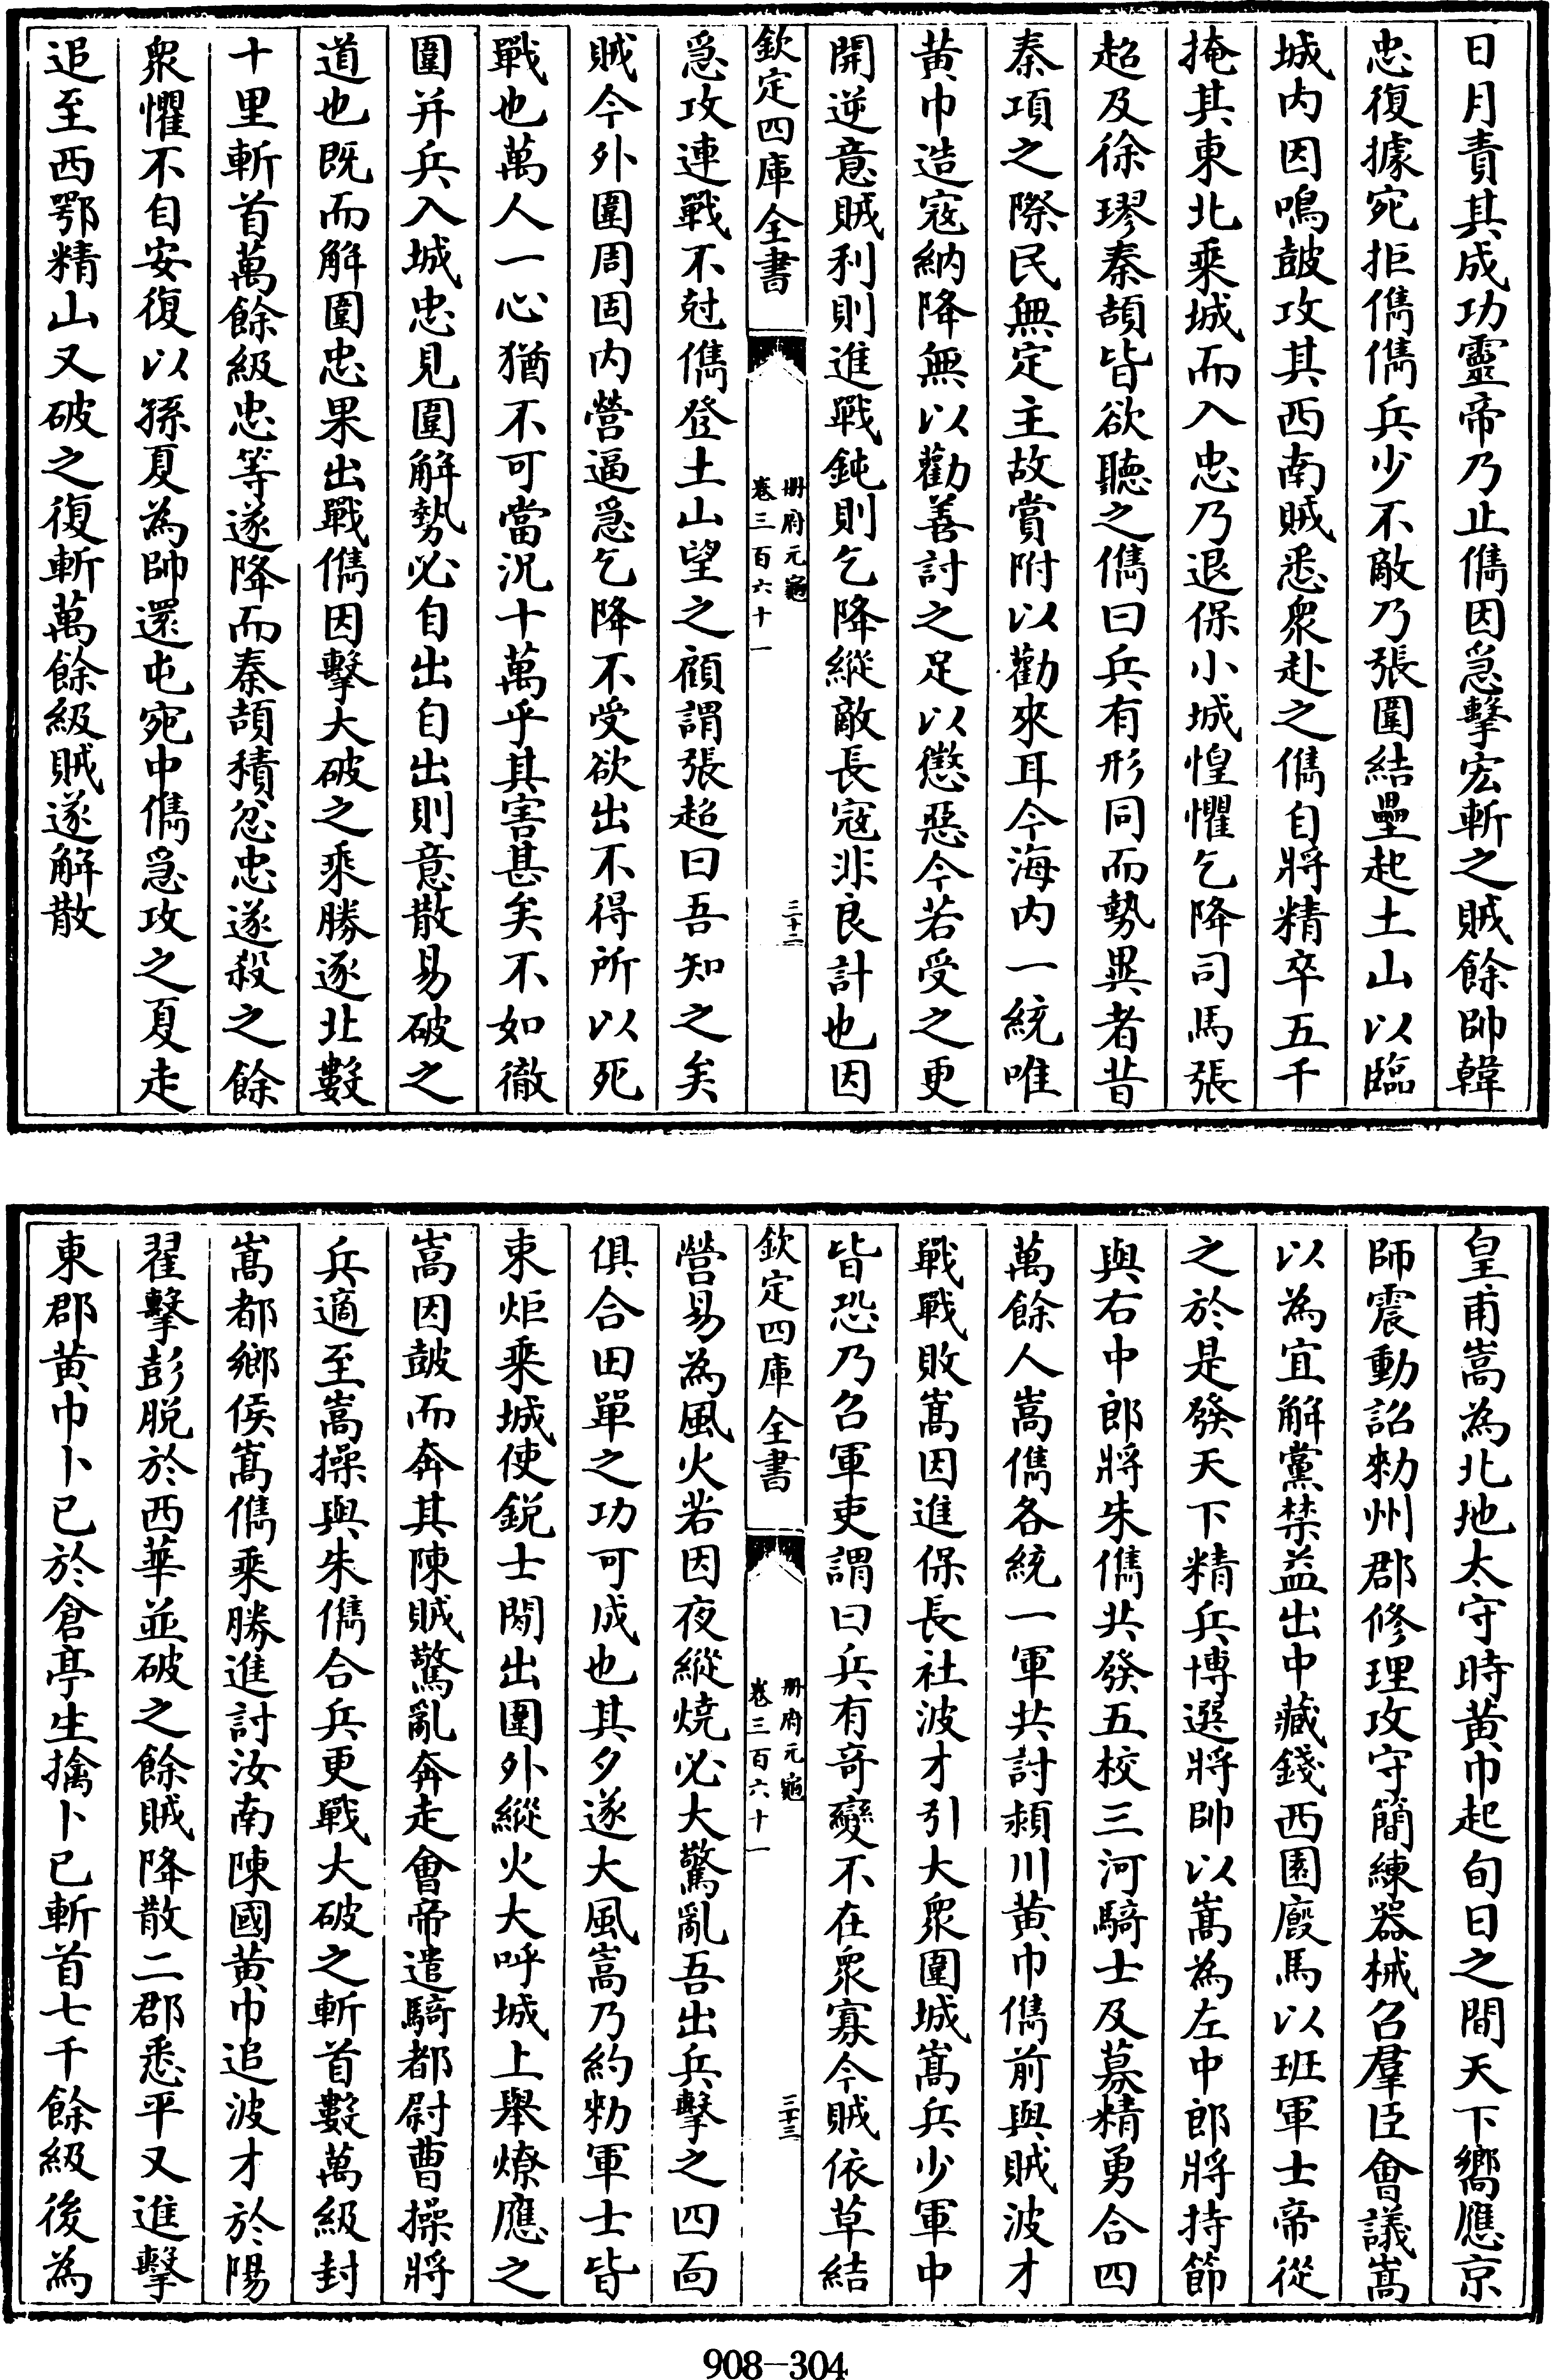 日月責其成功靈帝乃止儁因急擊宏斬之賊餘帥韓
忠復據宛拒儁儁兵少不敵乃張圍結壘起土山以臨
城内因鳴鼓攻其西南賊悉衆赴之儁自將精卒五千
掩其東北乘城而入忠乃退保小城惶懼乞降司馬張
超及徐璆秦頡皆欲聽之儁曰兵有形同而勢異者昔
秦項之際民無定主故賞附以勸來耳今海内一統唯
黄巾造寇納降無以勸善討之足以懲惡今若受之更
開逆意賊利則進戰鈍則乞降縱敵長寇非良計也因
欽定四庫全書
册府元龜
卷三百六十一
三十二
急攻連戰不尅儁登土山望之顧謂張超曰吾知之矣
賊今外圍周固内營逼急乞降不受欲出不得所以死
戰也萬人一心猶不可當況十萬乎其害甚矣不如徹
圍并兵入城忠見圍解勢必自出自出則意散易破之
道也既而解圍忠果出戰儁因擊大破之乘勝逐北數
十里斬首萬餘級忠等遂降而秦頡積忿忠遂殺之餘
衆懼不自安復以孫夏為帥還屯宛中儁急攻之夏走
追至西鄂精山又破之復斬萬餘級賊遂解散
皇甫嵩為北地太守時黄巾起旬日之間天下嚮應京
師震動詔勑州郡修理攻守簡練器械召羣臣會議嵩
以為宜解黨禁益出中藏錢西園廐馬以班軍士帝從
之於是發天下精兵博選將帥以嵩為左中郎將持節
與右中郎將朱儁共發五校三河騎士及募精勇合四
萬餘人嵩儁各統一軍共討潁川黄巾儁前與賊波才
戰戰敗嵩因進保長社波才引大衆圍城嵩兵少軍中
皆恐乃召軍吏謂曰兵有奇變不在衆寡今賊依草結
欽定四庫全書
册府元龜
卷三百六十一
三十三
營易為風火若因夜縱燒必大驚亂吾出兵擊之四面
俱合田單之功可成也其夕遂大風嵩乃約勑軍士皆
束炬乘城使鋭士閒出圍外縱火大呼城上舉燎應之
嵩因鼓而奔其陳賊驚亂奔走會帝遣騎都尉曹操將
兵適至嵩操與朱儁合兵更戰大破之斬首數萬級封
嵩都鄉侯嵩儁乘勝進討汝南陳國黄巾追波才於陽
翟擊彭脱於西華並破之餘賊降散二郡悉平又進擊
東郡黄巾卜已於倉亭生擒卜已斬首七千餘級後為
908-304